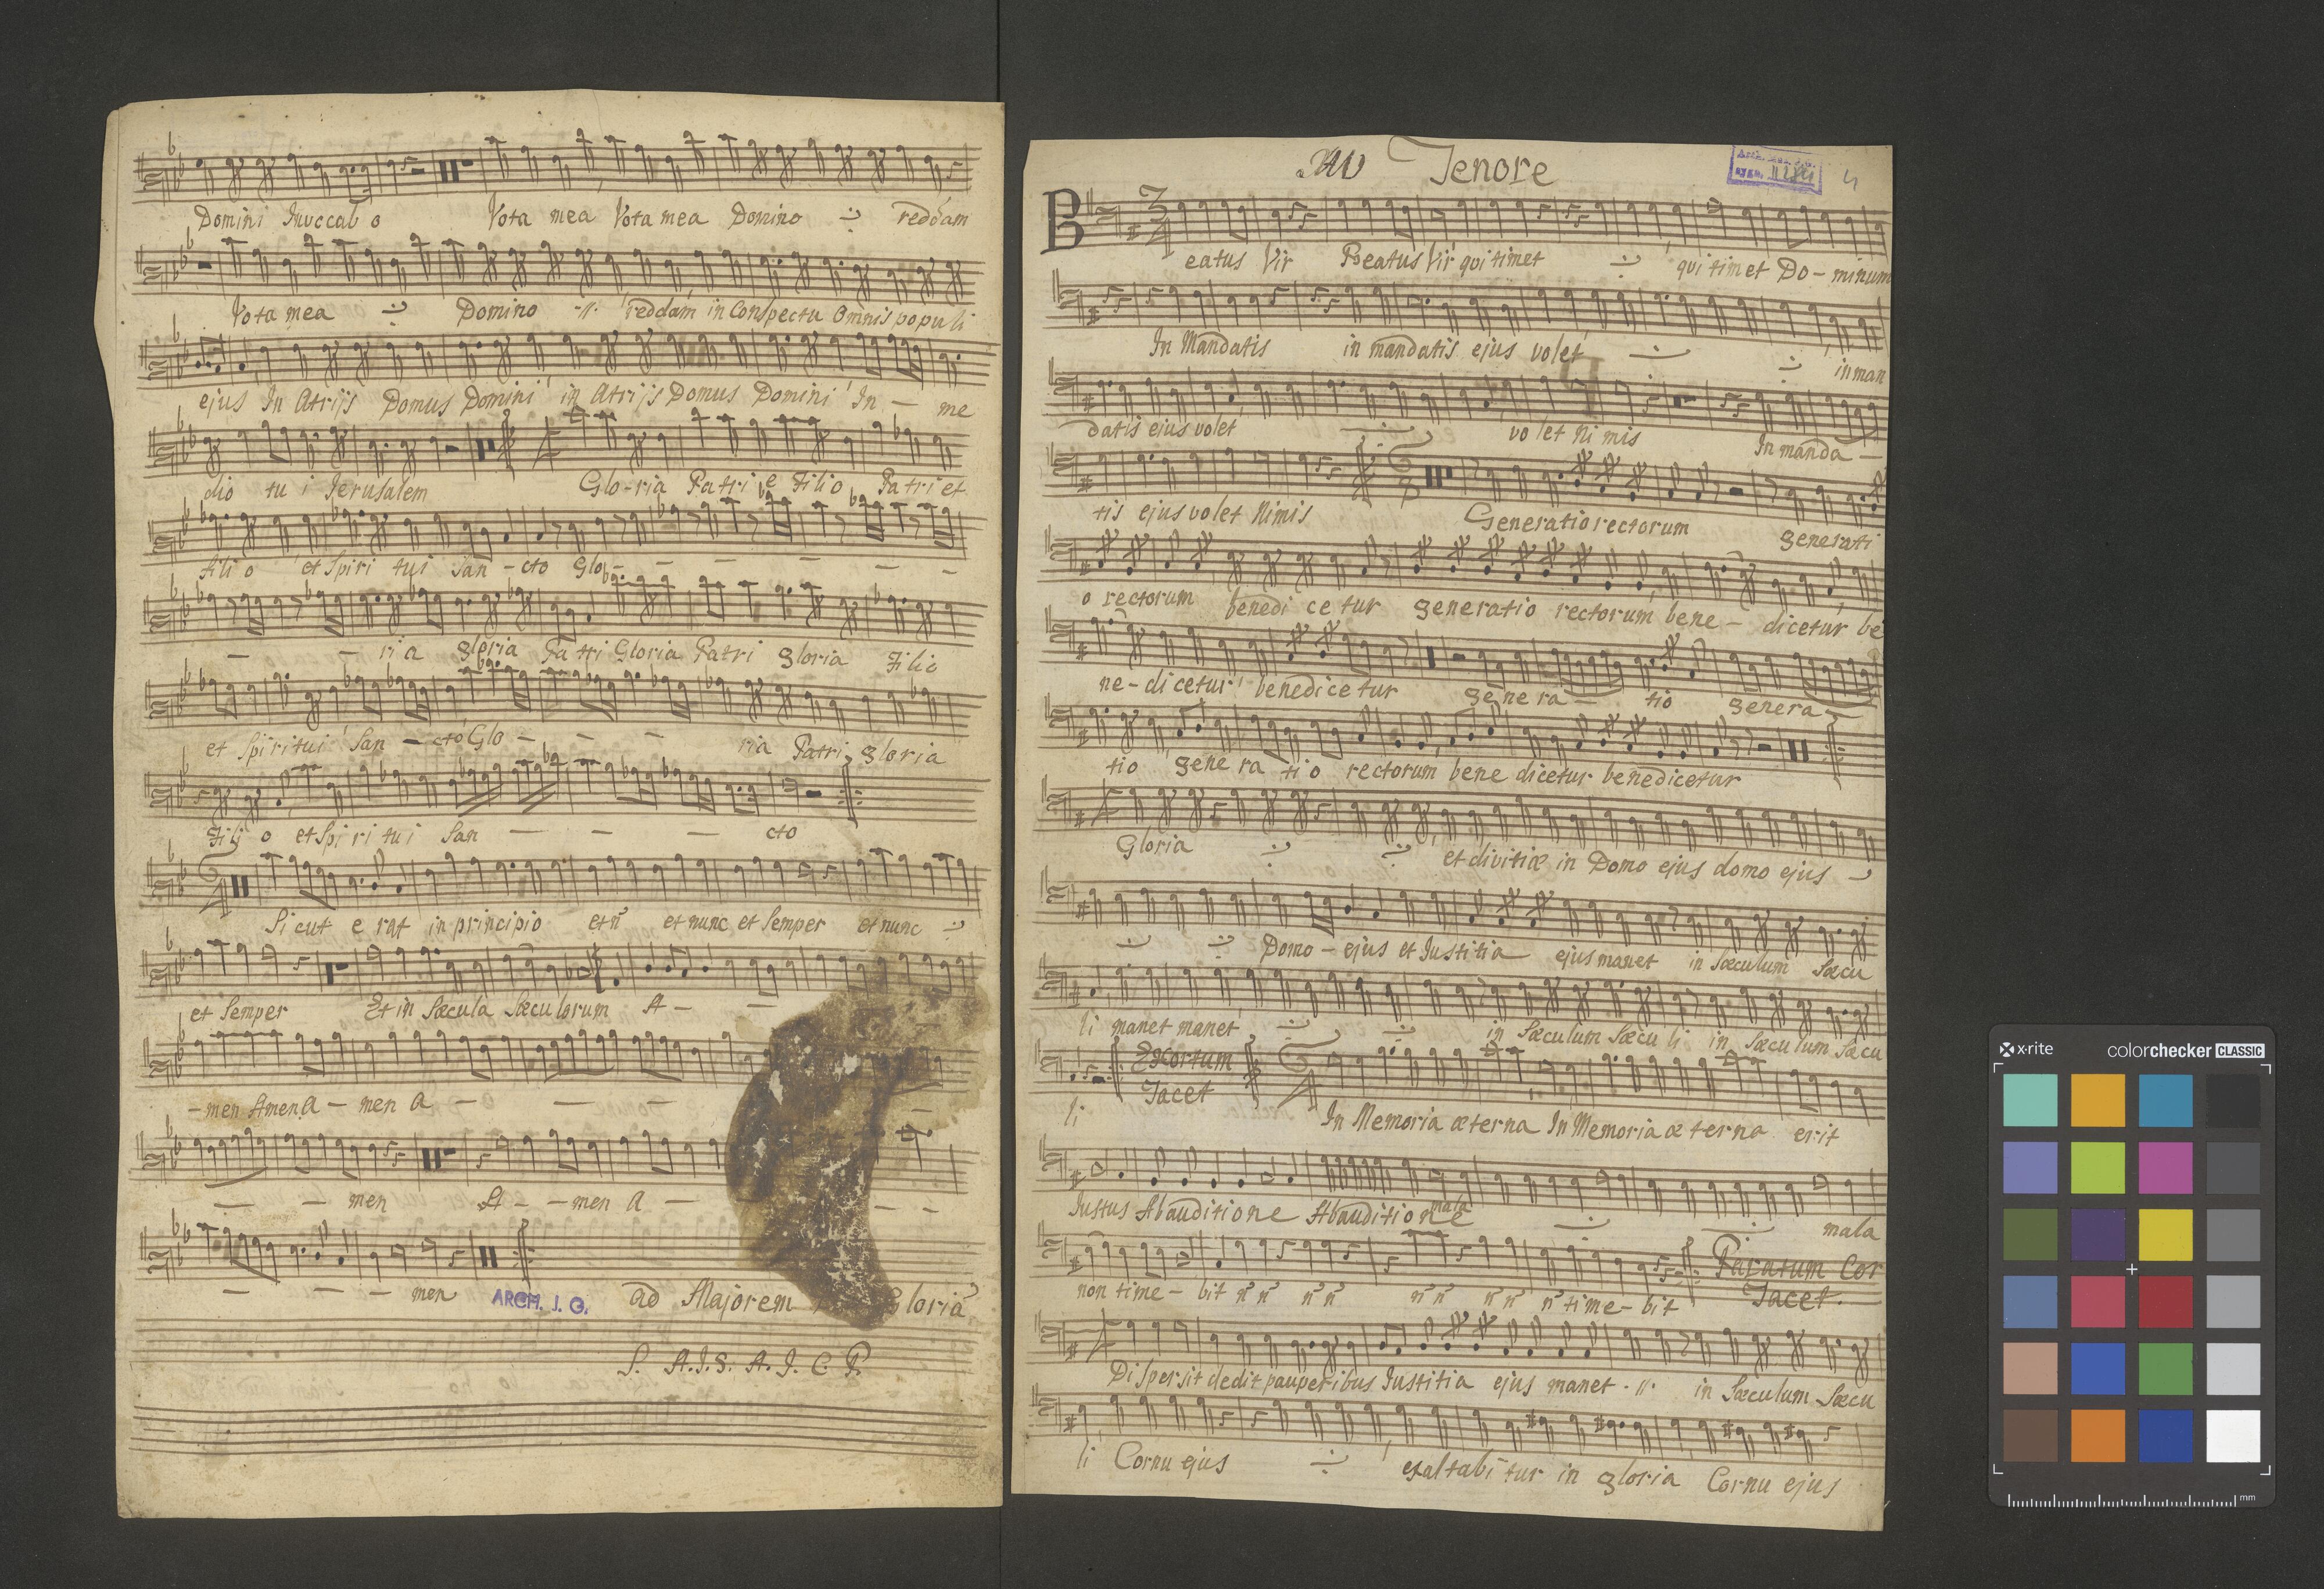 Domini Invocabo Vota mea Vota mea Domino reddam
Vota mea Domino -//· reddam in Conspectu Omnis populi
ejus In Atrijs Domus Domini in Atrijs Domus Domini In — me
dio tu i Jerusalem Glo-ria Patri e Filio Patri et
fili o et Spiri tui San - cto Glo - — — — — -
— — ri a gloria Patri Gloria Patri gloria Filio
et Spiritui San — cto Glo — — — ria Patri gloria
Filij o et Spi ri tu i San — — — cto
Si cut e rat in principio et n̄ et nunc et Semper et nunc
et Semper Et in Sæcula Sæculorum A — —
- men Amen A — men a — — — —
— — men A — - men a — - -
— — — men
ARCH. J. G.
ad Majorem Gloriã
S. A. J. S. A. J. C. P.
Tenore
4
Beatus Vir Beatus Vir qui timet qui timet Do - minum
In Mandatis in mandatis ejus volet in man
datis ejus volet volet Nimis In manda —
tis ejus volet Nimis Generatio rectorum generati
o rectorum benedi ce tur generatio rectorum bene - dicetur be
ne - di cetur benedicetur genera — tio genera —
tio gene ra ti o rectorum bene dicetur benedicetur
Gloria et divitiæ in Domo ejus domo ejus
Domo - ejus et Iustitia ejus manet in Sæculum Sæcu
li manet manet in Sæculum Sæcu li in Sæculum Sæcu
li Exortum
Tacet In Memoria æterna In Memoria æ terna erit
Iustus Ab auditione Ab auditione mala mala
non time - bit n̄ n̄ n̄ n̄ n̄ n̄ n̄ n̄ n̄ time - bit Paratum Cor
Tacet.
Dispersit dedit pauperibus Iustitia ejus manet · //· in Sæculum Sæcu
li Cornu ejus exaltabi tur in gloria Cornu ejus
x-rite colorchecker CLASSIC
mm